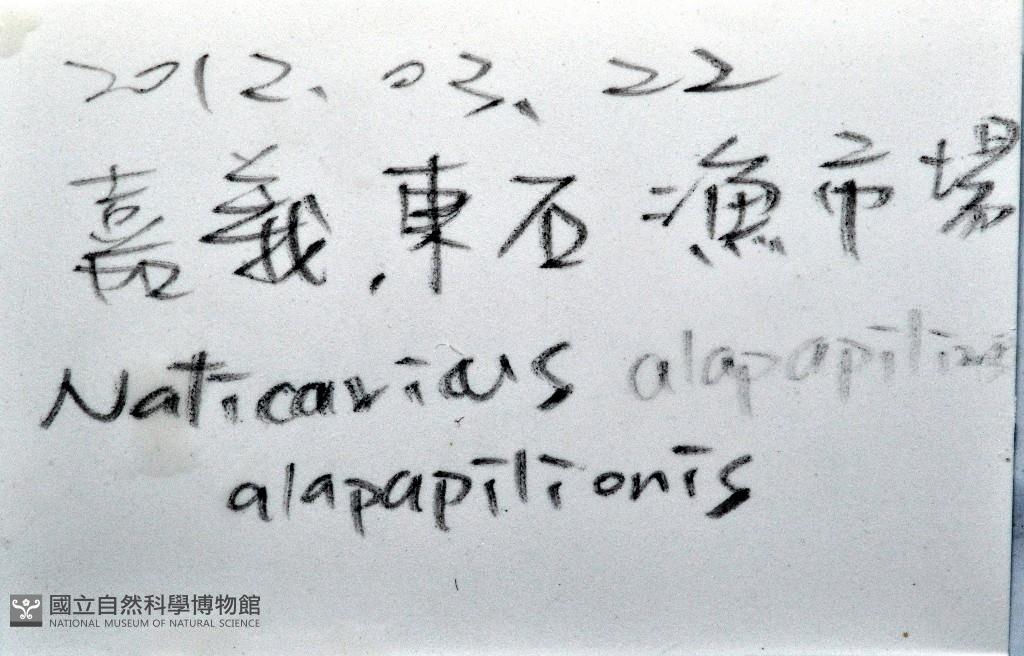 2012、03、22
嘉義,東石漁市場
Naticarius alapapilionis
alapapilionis
國立自然科學博物館
NATIONAL MUSEUM OF NATURAL SCIENCE